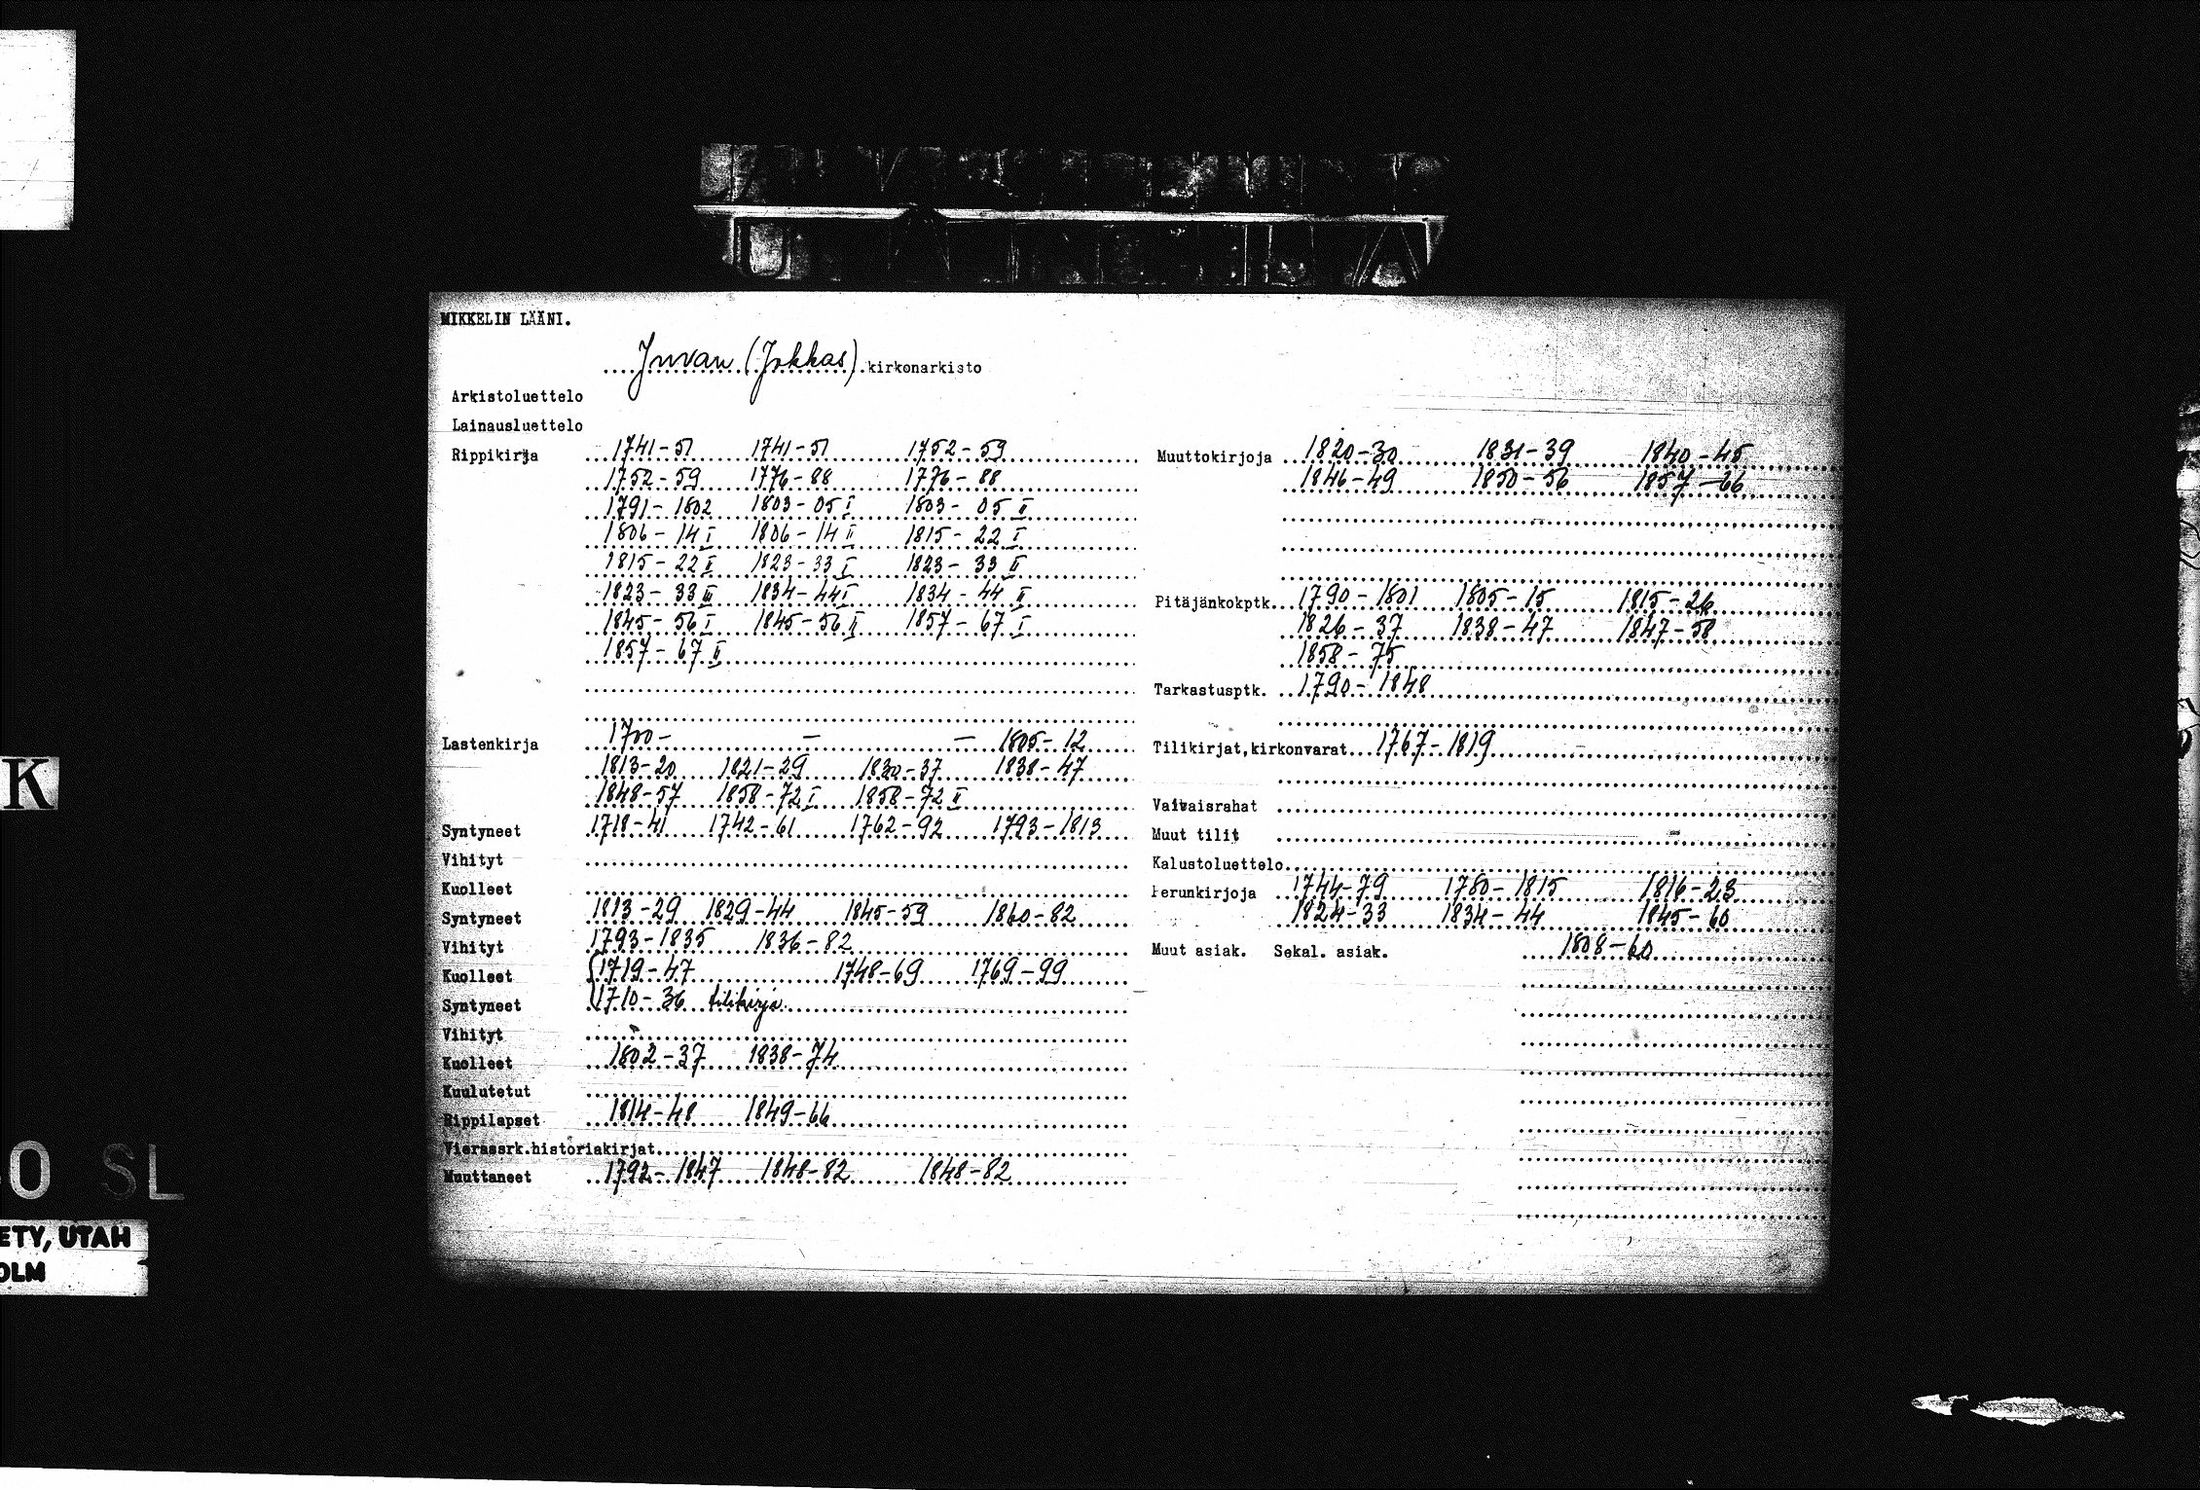 MIKKELIN LÄÄNI.
Juvan (Jokkas) kirkonarkisto
Arkistoluettelo
Lainausluettelo
Rippikirja 1741-51 1741-51 1752-59
1752-59 1776-88 1776-88
1791-1802 1803-05 I 1803-05 II
1806-14 I 1806-14 II 1815-22 I
1815-22 II 1823-33 I 1823-33 II
1823-33 III 1834-44 I 1834-44 II
1845-56 I 1845-56 II 1857-67 I
1857-67 II
Lastenkirja 1700- — — 1805-12
1813-20 1821-29 1830-37 1838-47
1848-57 1858-72 I 1858-72 II
Syntyneet 1718-41 1742-61 1762-92 1793-1813
Vihityt
Kuolleet
Syntyneet 1813-29 1829-44 1845-59 1860-82
Vihityt 1793-1835 1836-82
Kuolleet 1719-47 1748-69 1769-99
Syntyneet 1710-36 tilikirja
Vihityt
Kuolleet 1802-37 1838-74
Kuulutetut
Rippilapset 1814-48 1849-66
Vierassrk.historiakirjat
Muuttaneet 1792-1847 1848-82 1848-82
Muuttokirjoja 1820-30 1831-39 1840-45
1846-49 1850-56 1857-66
Pitäjänkokptk. 1790-1801 1805-15 1815-26
1826-37 1838-47 1847-58
1858-75
Tarkastusptk. 1790-1848
Tilikirjat,kirkonvarat 1767-1819
Vaivaisrahat
Muut tilit
Kalustoluettelo
Perunkirjoja 1744-79 1780-1815 1816-23
1824-33 1834-44 1845-60
Muut asiak. Sekal. asiak. 1808-60
K
O SL
ETY, UTAH
OLM